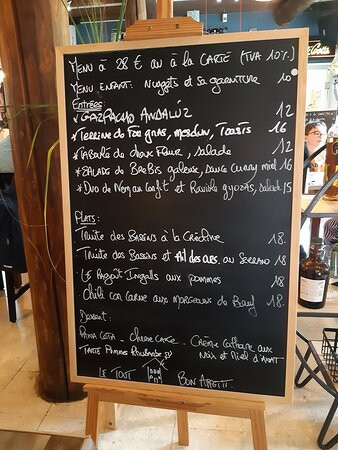 Menu à 28 € ou à la Carte (TVA 10%)
Menu enfant: Nuggets et sa garniture 10
Entrées:
GAZPACHO ANDALÚZ 12
Terrine de foie gras, mesclun, Toasts 16
Taboulé de choux fleur, salade 12
SALADE de Brebis galeuse, sauce Curry miel 16
Duo de confit et Raviole gyozas, salade 15
PLATS:
Truite des Bassins à la Créative 18.
Truite des Bassins et Ail des ours, au Serrano 18
Le Ingalls aux pommes 18
Chili con Carne aux morceaux de Bœuf 18.
Dessert:
Panna Cota - Cheese Cake - Crème Catalane aux
Tarte Pomme Rhubarbe Noix et Miel
LE TOUT BON APPETIT.